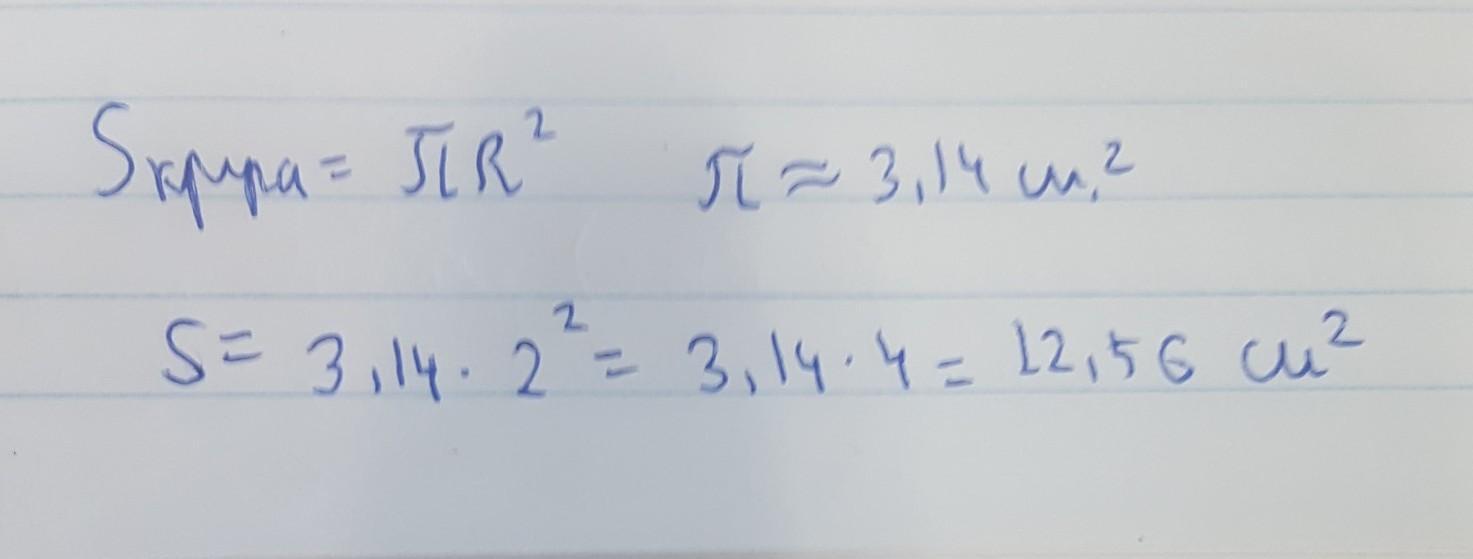 Sкруга = πR² π ≈ 3,14 см.²
S = 3,14 · 2² = 3,14 · 4 = 12,56 см²